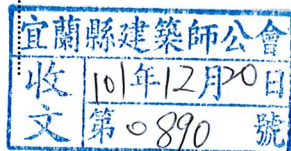 宜蘭縣建築師公會
收文
101年12月20日
第0890號